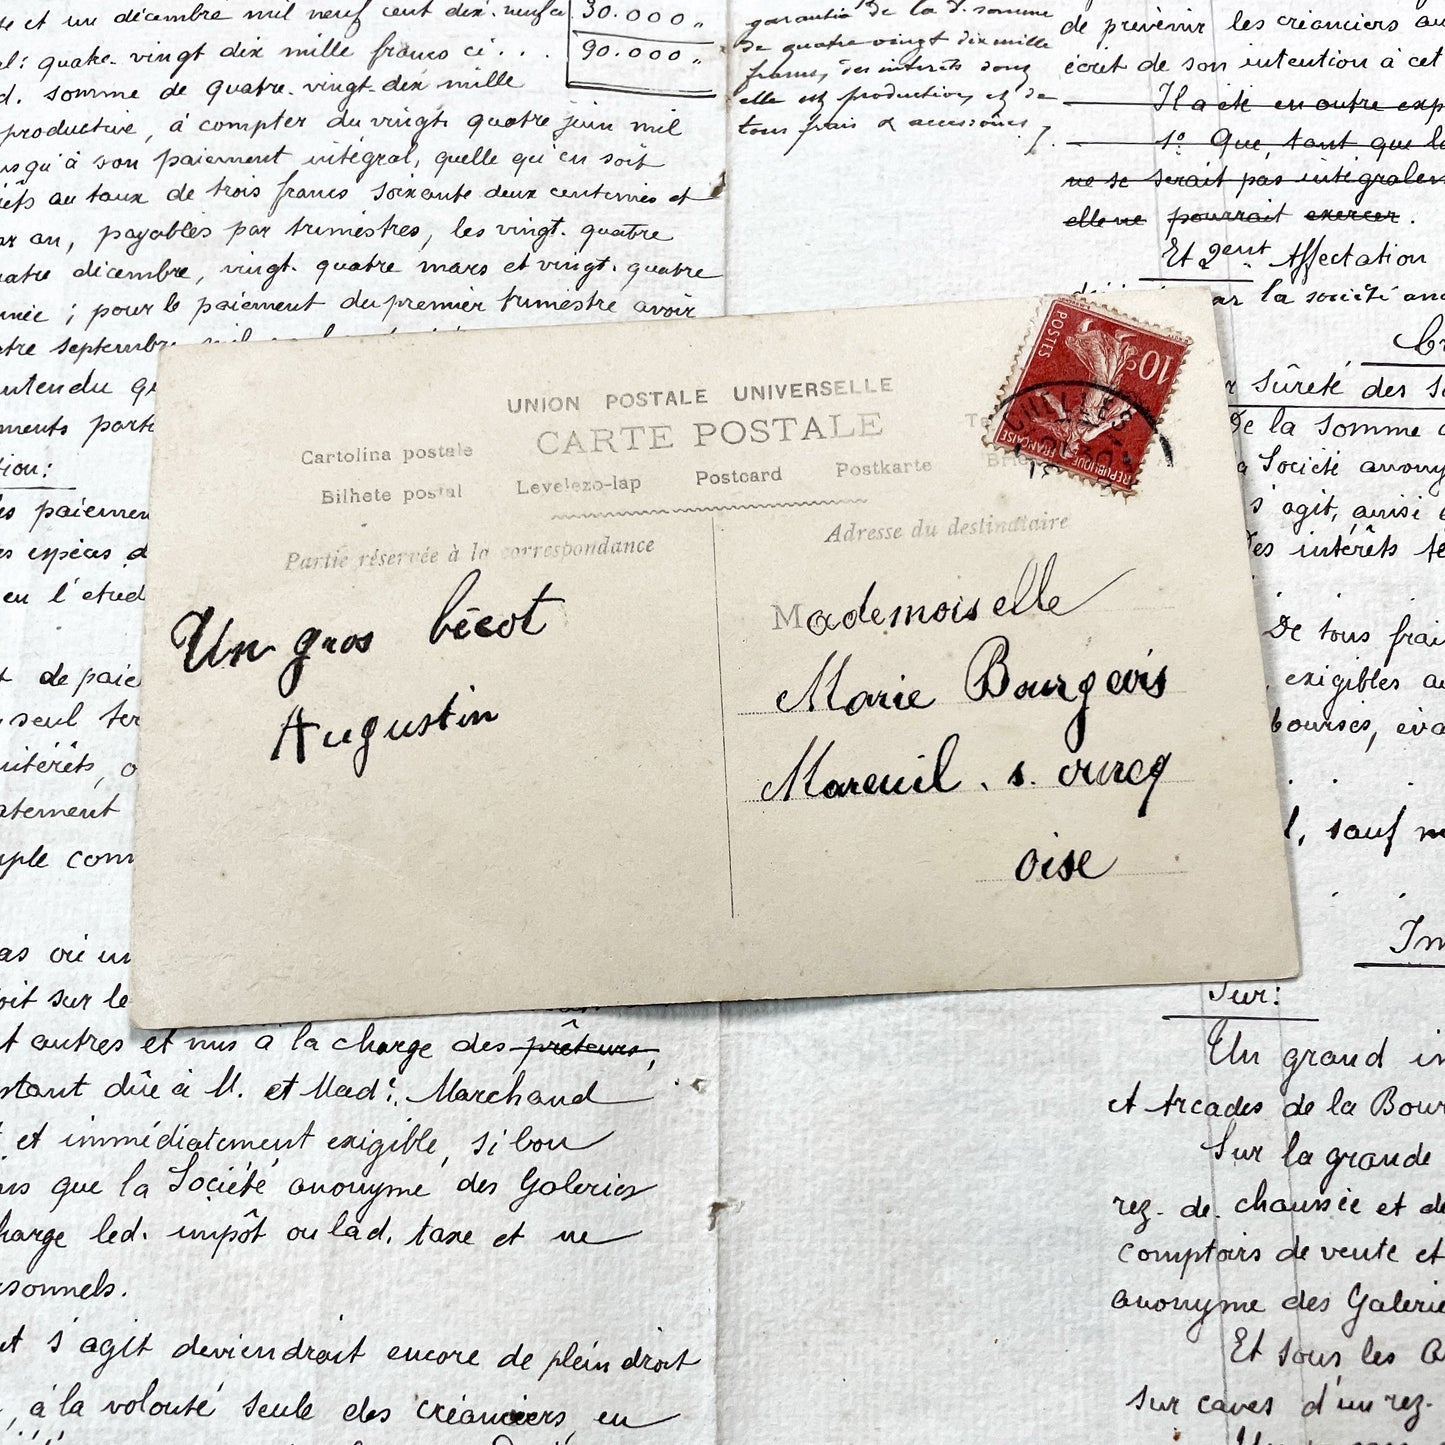 se et un décembre mil neuf cent dix-neuf ci
30.000 „
al: quatre-vingt dix mille francs ci . . .
90.000 „
d. somme de quatre-vingt-dix mille
productive, à compter du vingt quatre juin mil
usqu'à son paiement intégral, quelle qu'en soit
êts au taux de trois francs soixante deux centimes et
ar an, payables par trimestres, les vingt-quatre
uatre décembre, vingt-quatre mars et vingt-quatre
nnée ; pour le paiement du premier trimestre avoir
tre septembre
entendu q
ements part
tion:
es paiemen
es espèces d
en l'étud
t de paie
seul ter
ntérêts, o
atement
mple com
as où un
oit sur le
t autres et mis à la charge des prêteurs,
stant dûe à M. et Mad: Marchand
t et immédiatement exigible, si bon
ns que la Société anonyme des Galeries
harge led. impôt ou lad. taxe et ne
rsonnels.
nt s'agit deviendrait encore de plein droit
, à la volonté seule des créanciers, en
garantie de la d. somme
de quatre vingt dix mille
francs, des intérêts dont
elle est productive, et de
tous frais & accessoires /.
de prévenir les créanciers au
écrit de son intention à cet
Il a été en outre exp
1º Que, tant que la
ne se serait pas intégralem
elle ne pourrait exercer.
Et 2ent Affectation
ar la société ano
r sûreté des s
De la somme d
a Société anony
s'agit, ainsi
Des intérêts
De tous frai
exigibles au
boursés, éva
l, sauf m
Im
Sur:
Un grand im
et Arcades de la Bour
Sur la grande
rez-de-chaussée et de
comptoirs de vente et
anonyme des Galerie
Et sous les
sur caves d'un rez-
UNION POSTALE UNIVERSELLE
CARTE POSTALE
Cartolina postale
Bilhete postal
Levelezo-lap
Postcard
Postkarte
Partie réservée à la correspondance
Adresse du destinataire
Un gros bécot
Augustin
Mademoiselle
Marie Bourgeois
Mareuil . s. ourcq
oise
POSTES
10c
REPUBLIQUE FRANÇAISE